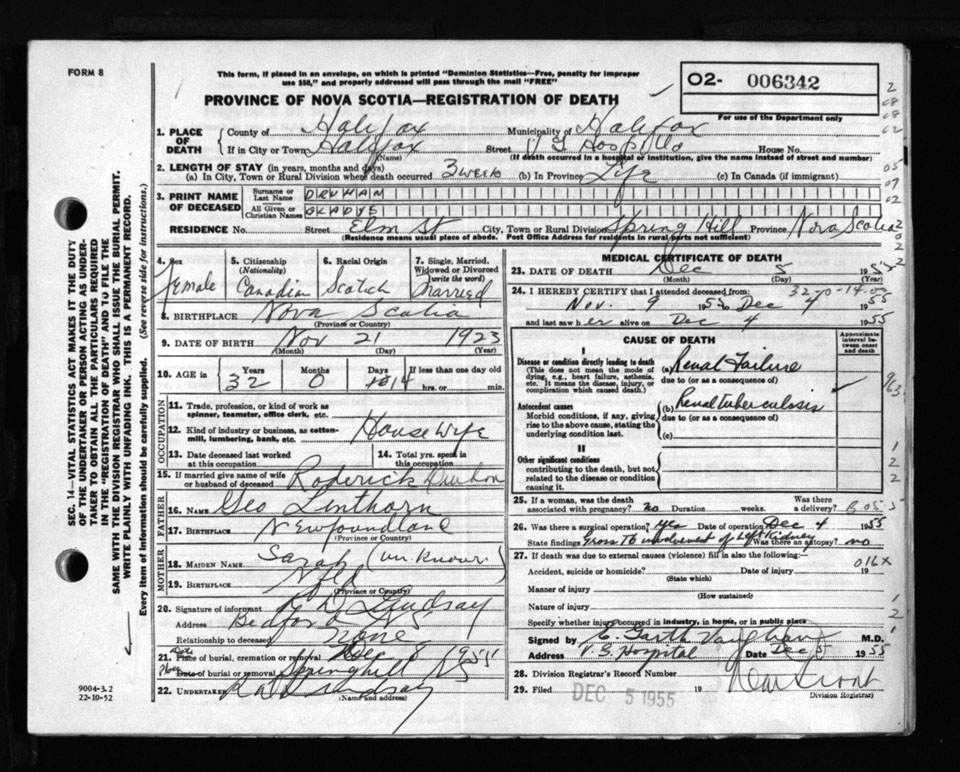 FORM 8
This form, if placed in an envelope, on which is printed "Dominion Statistics—Free, penalty for improper
use $50," and properly addressed will pass through the mail "FREE"
PROVINCE OF NOVA SCOTIA—REGISTRATION OF DEATH
O2- 006342
For use of the Department only
1. PLACE OF DEATH
County of Halifax Municipality of Halifax
If in City or Town Halifax Street V G Hospital House No.
(Name) (If death occurred in a hospital or institution, give the name instead of street and number)
2. LENGTH OF STAY (in years, months and days)
(a) In City, Town or Rural Division where death occurred 3 weeks (b) In Province Life (c) In Canada (if immigrant)
3. PRINT NAME OF DECEASED
Surname or Last Name DRUHAN
All Given or Christian Names GLADYS
RESIDENCE No. Street Elm St City, Town or Rural Division Spring Hill Province Nova Scotia
(Residence means usual place of abode. Post Office Address for residents in rural parts not sufficient)
4. Sex Female
5. Citizenship (Nationality) Canadian
6. Racial Origin Scotch
7. Single, Married, Widowed or Divorced (write the word) Married
8. BIRTHPLACE Nova Scotia
(Province or Country)
9. DATE OF BIRTH Nov 21 1923
(Month) (Day) (Year)
10. AGE in Years 32 Months 0 Days 14 If less than one day old
hrs. or min.
OCCUPATION
11. Trade, profession, or kind of work as spinner, teamster, office clerk, etc.
12. Kind of industry or business, as cotton-mill, lumbering, bank, etc. Housewife
13. Date deceased last worked at this occupation
14. Total yrs. spent in this occupation
15. If married give name of wife or husband of deceased Roderick Druhan
FATHER
16. NAME Geo Linthorn
17. BIRTHPLACE Newfoundland
MOTHER
18. MAIDEN NAME Sarah (unknown)
19. BIRTHPLACE Nfld
(Province or Country)
20. Signature of informant Lindsay
Address Bedford NS
Relationship to deceased none
21. Date Place of burial, cremation or removal Dec 8 1955
Place Date of burial or removal Springhill NS
22. Undertaker Lindsay
(Name and address)
MEDICAL CERTIFICATE OF DEATH
23. DATE OF DEATH Dec 5 1955
24. I HEREBY CERTIFY that I attended deceased from: 32-0-14-00
Nov. 9 1955 to Dec 4 1955
and last saw her alive on Dec 4 1955
CAUSE OF DEATH
Approximate interval between onset and death
I
Disease or condition directly leading to death (This does not mean the mode of dying, e.g., heart failure, asthenia, etc. It means the disease, injury, or complication which caused death.)
(a) Renal Failure
due to (or as a consequence of)
Antecedent causes
Morbid conditions, if any, giving rise to the above cause, stating the underlying condition last.
(b) Renal tuberculosis
due to (or as a consequence of)
(c)
II
Other significant conditions contributing to the death, but not related to the disease or condition causing it.
25. If a woman, was the death associated with pregnancy? no Duration weeks. Was there a delivery?
26. Was there a surgical operation? yes Date of operation Dec 4 1955
State findings Gross TB involvement of Left Kidney Was there an autopsy? no
27. If death was due to external causes (violence) fill in also the following:
Accident, suicide or homicide? Date of injury 19
(State which)
016X
Manner of injury
(How sustained)
Nature of injury
Specify whether injury occurred in industry, in home, or in public place
Signed by E. Garth Vaughan M.D.
Address V.G. Hospital Date Dec 5 1955
28. Division Registrar's Record Number
29. Filed DEC 5 1955 29.
Division Registrar)
SEC. 14—VITAL STATISTICS ACT MAKES IT THE DUTY
OF THE UNDERTAKER OR PERSON ACTING AS UNDER-
TAKER TO OBTAIN ALL THE PARTICULARS REQUIRED
IN THE "REGISTRATION OF DEATH" AND TO FILE THE
SAME WITH THE DIVISION REGISTRAR WHO SHALL ISSUE THE BURIAL PERMIT.
WRITE PLAINLY WITH UNFADING INK. THIS IS A PERMANENT RECORD.
Every item of information should be carefully supplied. (See reverse side for instructions.)
9004-3.2
22-10-52